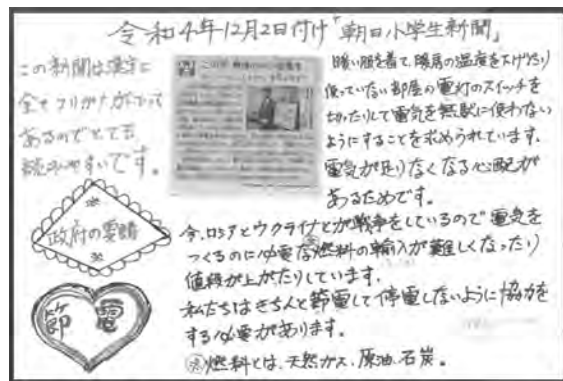 令和4年12月2日付け「朝日小学生新聞」
この新聞は漢字に
全てフリガナがふって
あるのでとても
読みやすいです。
暖い服を着て、暖房の温度を下げたり
使っていない部屋の電灯のスイッチを
切ったりして電気を無駄に使わない
ようにすることを求められています。
電気が足りなくなる心配が
あるためです。
政府の要請
節電
今、ロシアとウクライナとが戦争をしているので電気を
つくるのに必要な燃料の輸入が難しくなったり
値段が上がたりしています。
私たちはきちんと節電して停電しないように協力を
する必要があります。
燃料とは、天然ガス、原油、石炭。